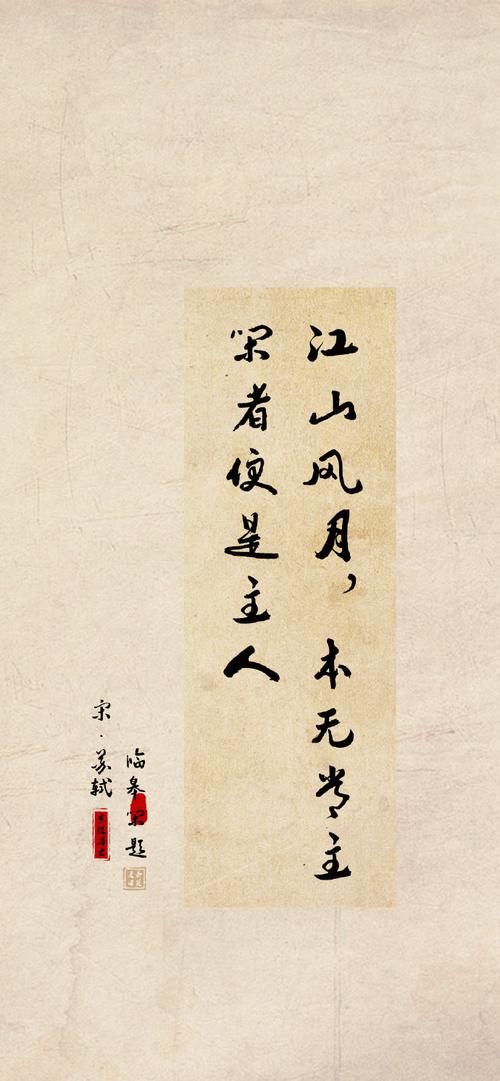 江山风月，本无常主
闲者便是主人
临皋闲题
宋·苏轼